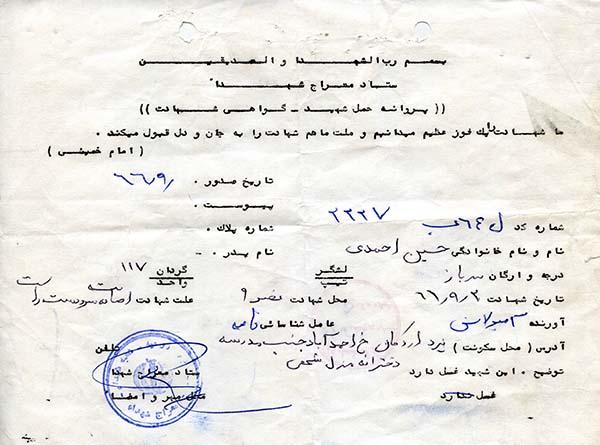 بسم رب الشهدا و الصدیقین
ستاد معراج شهدا
(( پروانه حمل شهید - گواهی شهادت ))
ما شهادت را یک فوز عظیم میدانیم و ملت ما هم شهادت را به جان و دل قبول میکند .
( امام خمینی )
تاریخ صدور . ۶۶/۹/
پیوست .
شماره کد ۲۳۳۷
شماره پلاک .
نام و نام خانوادگی حسین احمدی
نام پدر . -
درجه و ارگان سرباز
لشگر
تیپ
گردان ۱۱۷
واحد
تاریخ شهادت ۶۶/۹/۳
محل شهادت
علت شهادت اصابت
آورنده آمبولانس
عامل شناسائی نامه
آدرس ( محل سکونت ) یزد اردکان خ احمدآباد جنب مدرسه
دخترانه منزل شخصی
تلفن
توضیح . این شهید غسل دارد
غسل ندارد
ستاد معراج شهدا
محل مهر و امضا
معراج شهداء